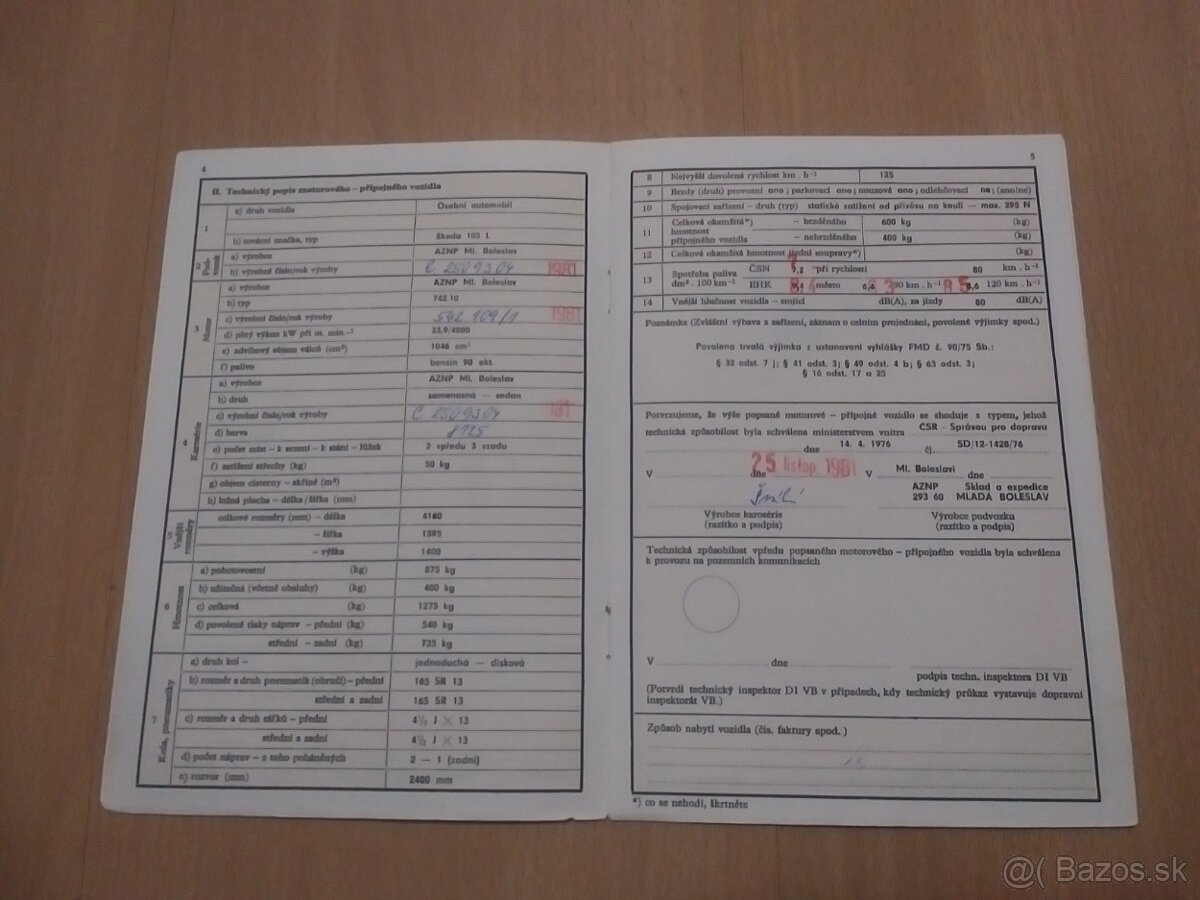 4
II. Technický popis motorového – přípojného vozidla
1
a) druh vozidla Osobní automobil
b) tovární značka, typ Škoda 105 L
2
a) výrobce AZNP Ml. Boleslav
b) výrobní číslo/rok výroby 1981
3 Motor
a) výrobce AZNP Ml. Boleslav
b) typ 742.10
c) výrobní číslo/rok výroby 1981
d) plný výkon kW při ot. min.⁻¹ 33,9/4800
e) zdvihový objem válců (cm³) 1046 cm³
f) palivo benzin 90 okt.
4 Karosérie
a) výrobce AZNP Ml. Boleslav
b) druh samonosná — sedan
c) výrobní číslo/rok výroby
d) barva 8125
e) počet míst – k sezení – k stání – lůžek 2 vpředu 3 vzadu
f) zatížení střechy (kg) 50 kg
g) objem cisterny – skříně (m³)
h) ložná plocha – délka /šířka (mm)
5 Vnější rozměry
celkové rozměry (mm) – délka 4160
– šířka 1595
– výška 1400
6 Hmotnost
a) pohotovostní (kg) 875 kg
b) užitečná (včetně obsluhy) (kg) 400 kg
c) celková (kg) 1275 kg
d) povolené tlaky náprav – přední (kg) 540 kg
střední – zadní (kg) 735 kg
7 Kola, pneumatiky
a) druh kol – jednoduchá — disková
b) rozměr a druh pneumatik (obručí) – přední 165 SR 13
střední a zadní 165 SR 13
c) rozměr a druh ráfků – přední 4½ J × 13
střední a zadní 4½ J × 13
d) počet náprav – z toho poháněných 2 — 1 (zadní)
e) rozvor (mm) 2400 mm
5
8 Nejvyšší dovolená rychlost km . h⁻¹ 125
9 Brzdy (druh) provozní ano ; parkovací ano ; nouzová ano ; odlehčovací ne ; (ano/ne)
10 Spojovací zařízení – druh (typ) statické zatížení od přívěsu na kouli — max. 295 N
11 Celková okamžitá*) – brzděného 600 kg (kg)
hmotnost
přípojného vozidla – nebrzděného 400 kg (kg)
12 Celková okamžitá hmotnost jízdní soupravy*) (kg)
13 Spotřeba paliva ČSN při rychlosti 80 km . h⁻¹
dm³ . 100 km⁻¹ EHK město 90 km . h⁻¹ 120 km . h⁻¹
14 Vnější hlučnost vozidla – stojící dB(A), za jízdy 80 dB(A)
Poznámka (Zvláštní výbava a zařízení, záznam o celním projednání, povolené výjimky apod.)
Povolena trvalá výjimka z ustanovení vyhlášky FMD č. 90/75 Sb.:
§ 32 odst. 7 j; § 41 odst. 3; § 49 odst. 4 b; § 63 odst. 3;
§ 16 odst. 17 a 25
Potvrzujeme, že výše popsané motorové – přípojné vozidlo se shoduje s typem, jehož
technická způsobilost byla schválena ministerstvem vnitra ČSR - Správou pro dopravu
dne 14. 4. 1976 čj. SD/12-1428/76
V dne 25. listop. 1981 V Ml. Boleslavi dne
AZNP Sklad a expedice
293 60 MLADÁ BOLESLAV
Výrobce karosérie Výrobce podvozku
(razítko a podpis) (razítko a podpis)
Technická způsobilost vpředu popsaného motorového – přípojného vozidla byla schválena
k provozu na pozemních komunikacích
V dne
podpis techn. inspektora DI VB
(Potvrdí technický inspektor DI VB v případech, kdy technický průkaz vystavuje dopravní
inspektorát VB.)
Způsob nabytí vozidla (čís. faktury apod. )
*) co se nehodí, škrtněte
@( Bazos.sk